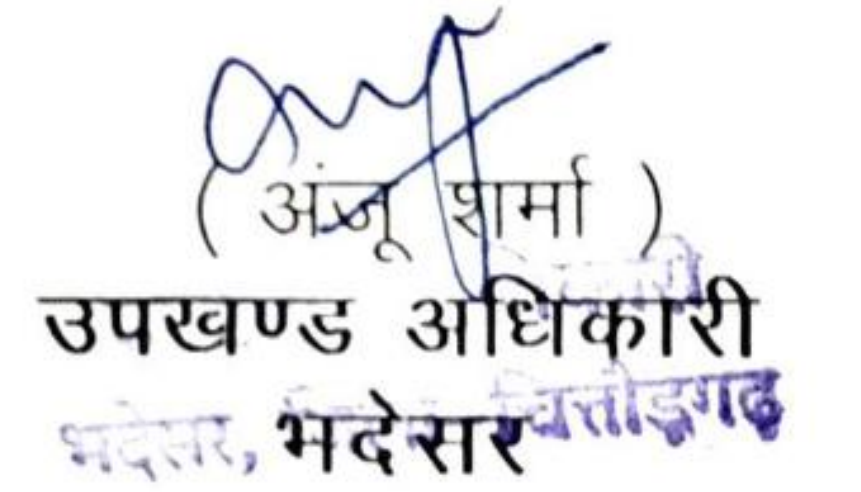 ( अंजू शर्मा )
उपखण्ड अधिकारी
भदेसर
भदेसर, चित्तौड़गढ़